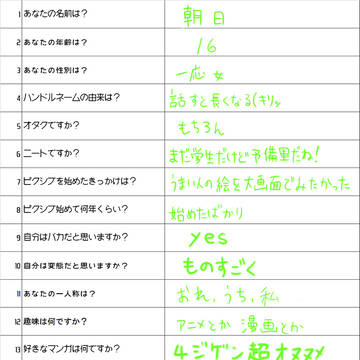 1 あなたの名前は? 朝日
2 あなたの年齢は? 16
3 あなたの性別は? 一応女
4 ハンドルネームの由来は? 話すと長くなる(キリッ
5 オタクですか? もちろん
6 ニートですか? まだ学生だけど予備軍だね!
7 ピクシブを始めたきっかけは? うまい人の絵を大画面でみたかった
8 ピクシブ始めて何年くらい? 始めたばかり
9 自分はバカだと思いますか? yes
10 自分は変態だと思いますか? ものすごく
11 あなたの一人称は? おれ,うち,私
12 趣味は何ですか? アニメとか 漫画とか
13 好きなマンガは何ですか? 4ジゲン超オススメ